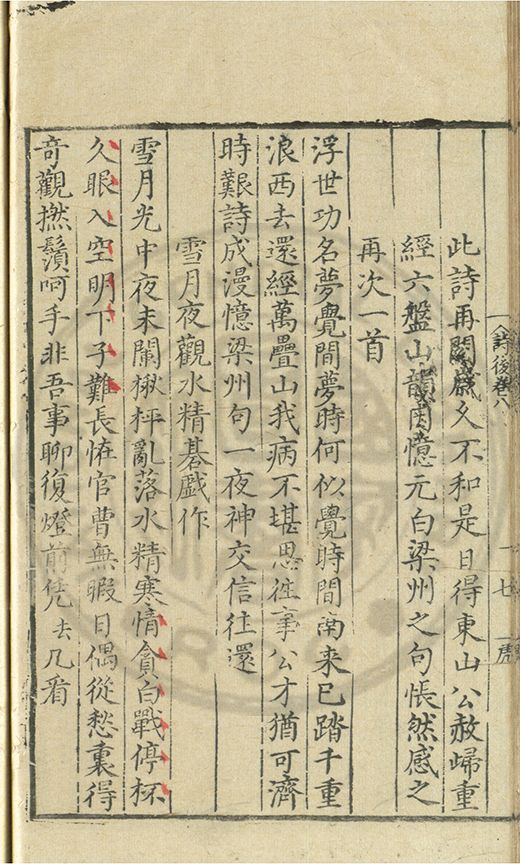 詩後卷八
七
此詩再閱歲久不和是日得東山公赦歸重
經六盤山韻因憶元白梁州之句悵然感之
再次一首
浮世功名夢覺間夢時何似覺時間南来已踏千重
浪西去還經萬疊山我病不堪思徃事公才猶可濟
時艱詩成漫憶梁州句一夜神交信往還
雪月夜觀水精碁戯作
雪月光中夜未闌楸枰亂落水精寒情貪白戰停杯
久眼入空明下子難長恠官曹無暇日偶從愁裏得
奇觀撚鬚呵手非吾事聊復燈前凭去几看